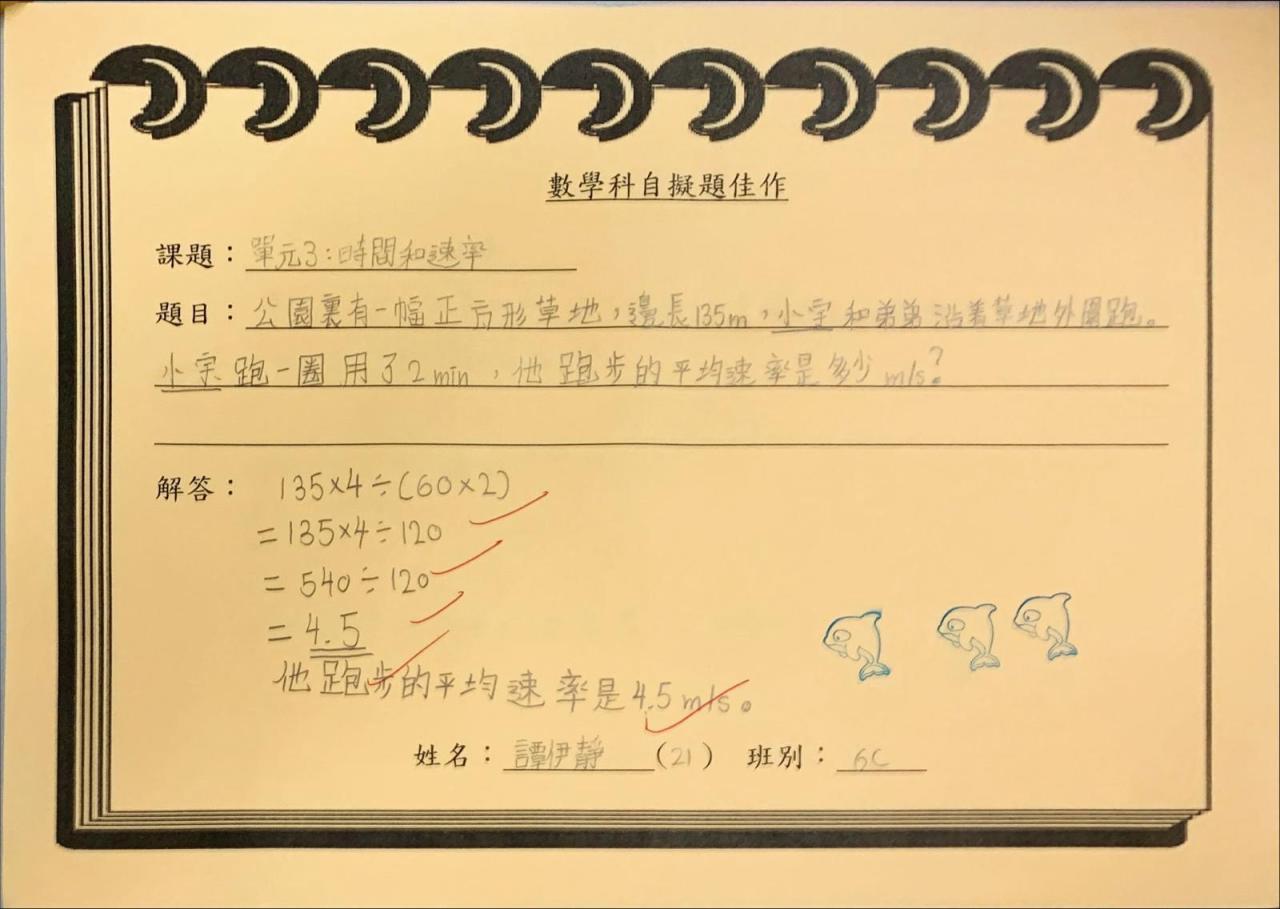 數學科自擬題佳作
課題：單元3：時間和速率
題目：公園裏有一幅正方形草地，邊長135m，小宇和弟弟沿着草地外圍跑。
小宇跑一圈用了2min，他跑步的平均速率是多少m/s？
解答：135×4÷(60×2)
=135×4÷120
=540÷120
=4.5
他跑步的平均速率是4.5m/s。
姓名：譚伊靜（21）班別：6C